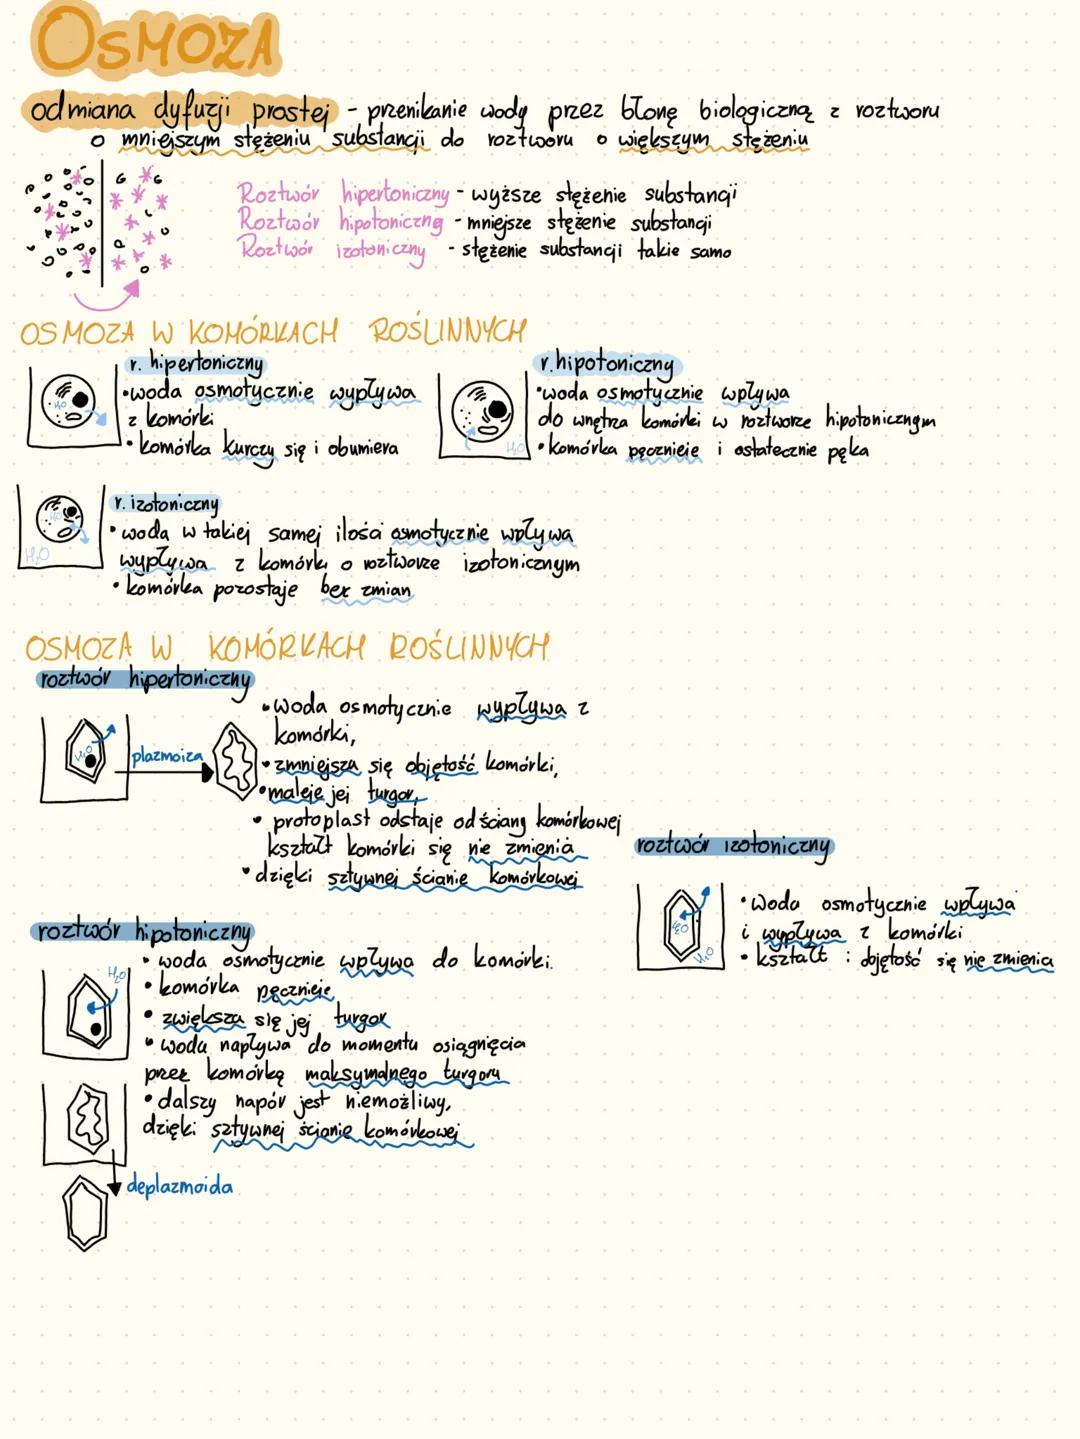 OSMOZA
odmiana dyfuzji prostej - przenikanie wody przez błonę biologiczną z roztworu
o mniejszym stężeniu substancji do roztworu o większym stężeniu
Roztwór hipertoniczny - wyższe stężenie substancji
Roztwór hipotoniczny - mniejsze stężenie substancji
Roztwór izotoniczny - stężenie substancji takie samo
OSMOZA W KOMÓRKACH ROŚLINNYCH
r. hipertoniczny
H₂O
• woda osmotycznie wypływa
z komórki
• komórka kurczy się i obumiera
r. hipotoniczny
H₂O
• woda osmotycznie wpływa
do wnętrza komórki w roztworze hipotonicznym
• komórka pęcznieje i ostatecznie pęka
r. izotoniczny
H₂O
H₂O
• woda w takiej samej ilości osmotycznie wpływa
wypływa z komórki o roztworze izotonicznym
• komórka pozostaje bez zmian
OSMOZA W KOMÓRKACH ROŚLINNYCH
roztwór hipertoniczny
H₂O
plazmoiza
• woda osmotycznie wypływa z
komórki,
• zmniejsza się objętość komórki,
• maleje jej turgor,
• protoplast odstaje od ściany komórkowej
kształt komórki się nie zmienia
• dzięki sztywnej ścianie komórkowej
roztwór izotoniczny
H₂O
H₂O
• Woda osmotycznie wpływa
i wypływa z komórki
• kształt i objętość się nie zmienia
roztwór hipotoniczny
H₂O
• woda osmotycznie wpływa do komórki.
• komórka pęcznieje,
• zwiększa się jej turgor
• woda napływa do momentu osiągnięcia
przez komórkę maksymalnego turgoru
• dalszy napór jest niemożliwy,
dzięki sztywnej ścianie komórkowej
deplazmoida